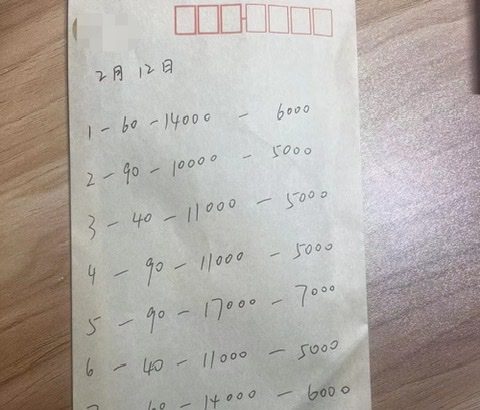 2月12日
1-60-14000-6000
2-90-10000-5000
3-40-11000-5000
4-90-11000-5000
5-90-17000-7000
6-40-11000-5000
7-60-14000-6000